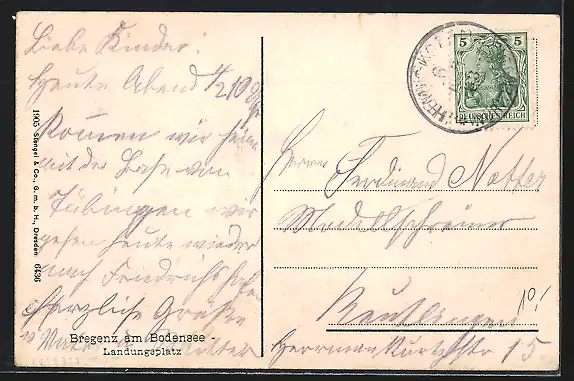 Liebe Kinder!
Heute Abend 1/2 10 Uhr
kommen wir heim
mit der Bahn von
Tübingen wir
gehen heute wieder
nach Friedrichshafen
Herzliche Grüße
v. Vater u. Mutter
Bregenz am Bodensee -
Landungsplatz
1905 Stengel & Co., G. m. b. H., Dresden 6436
5 5
DEUTSCHES REICH
Herrn Ferdinand
Modellschreiner
Reutlingen
Herrmann Kurtzstr 15
10.!